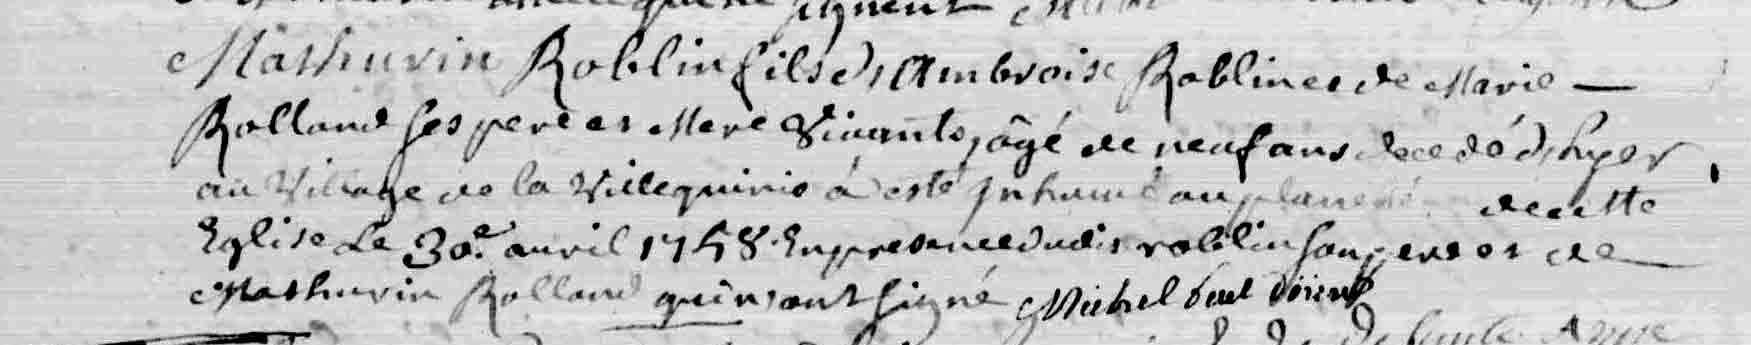 signent
Mathurin Roblin fils d'Ambroise Roblin et de Marie —
Rolland ses pere et Mere Vivants, âgé de neuf ans decedé d'hyer
au Village de la Villequinio a esté Inhumé au decette
Eglise Le 30e. avril 1758. En presence dudit roblin son pere et de
Mathurin Rolland qui n'ont signé Michel